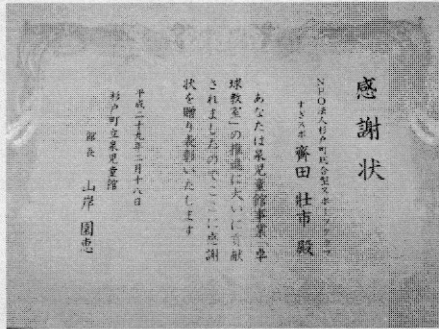 感謝状
NPO法人杉戸町総合型スポーツクラブ
すぎスポ 齊田 壯市 殿
あなたは泉児童館事業「卓
球教室」の推進に大いに貢献
されましたのでここに感謝
状を贈り表彰いたします
平成二十九年二月十八日
杉戸町立泉児童館
館長 山岸 園恵